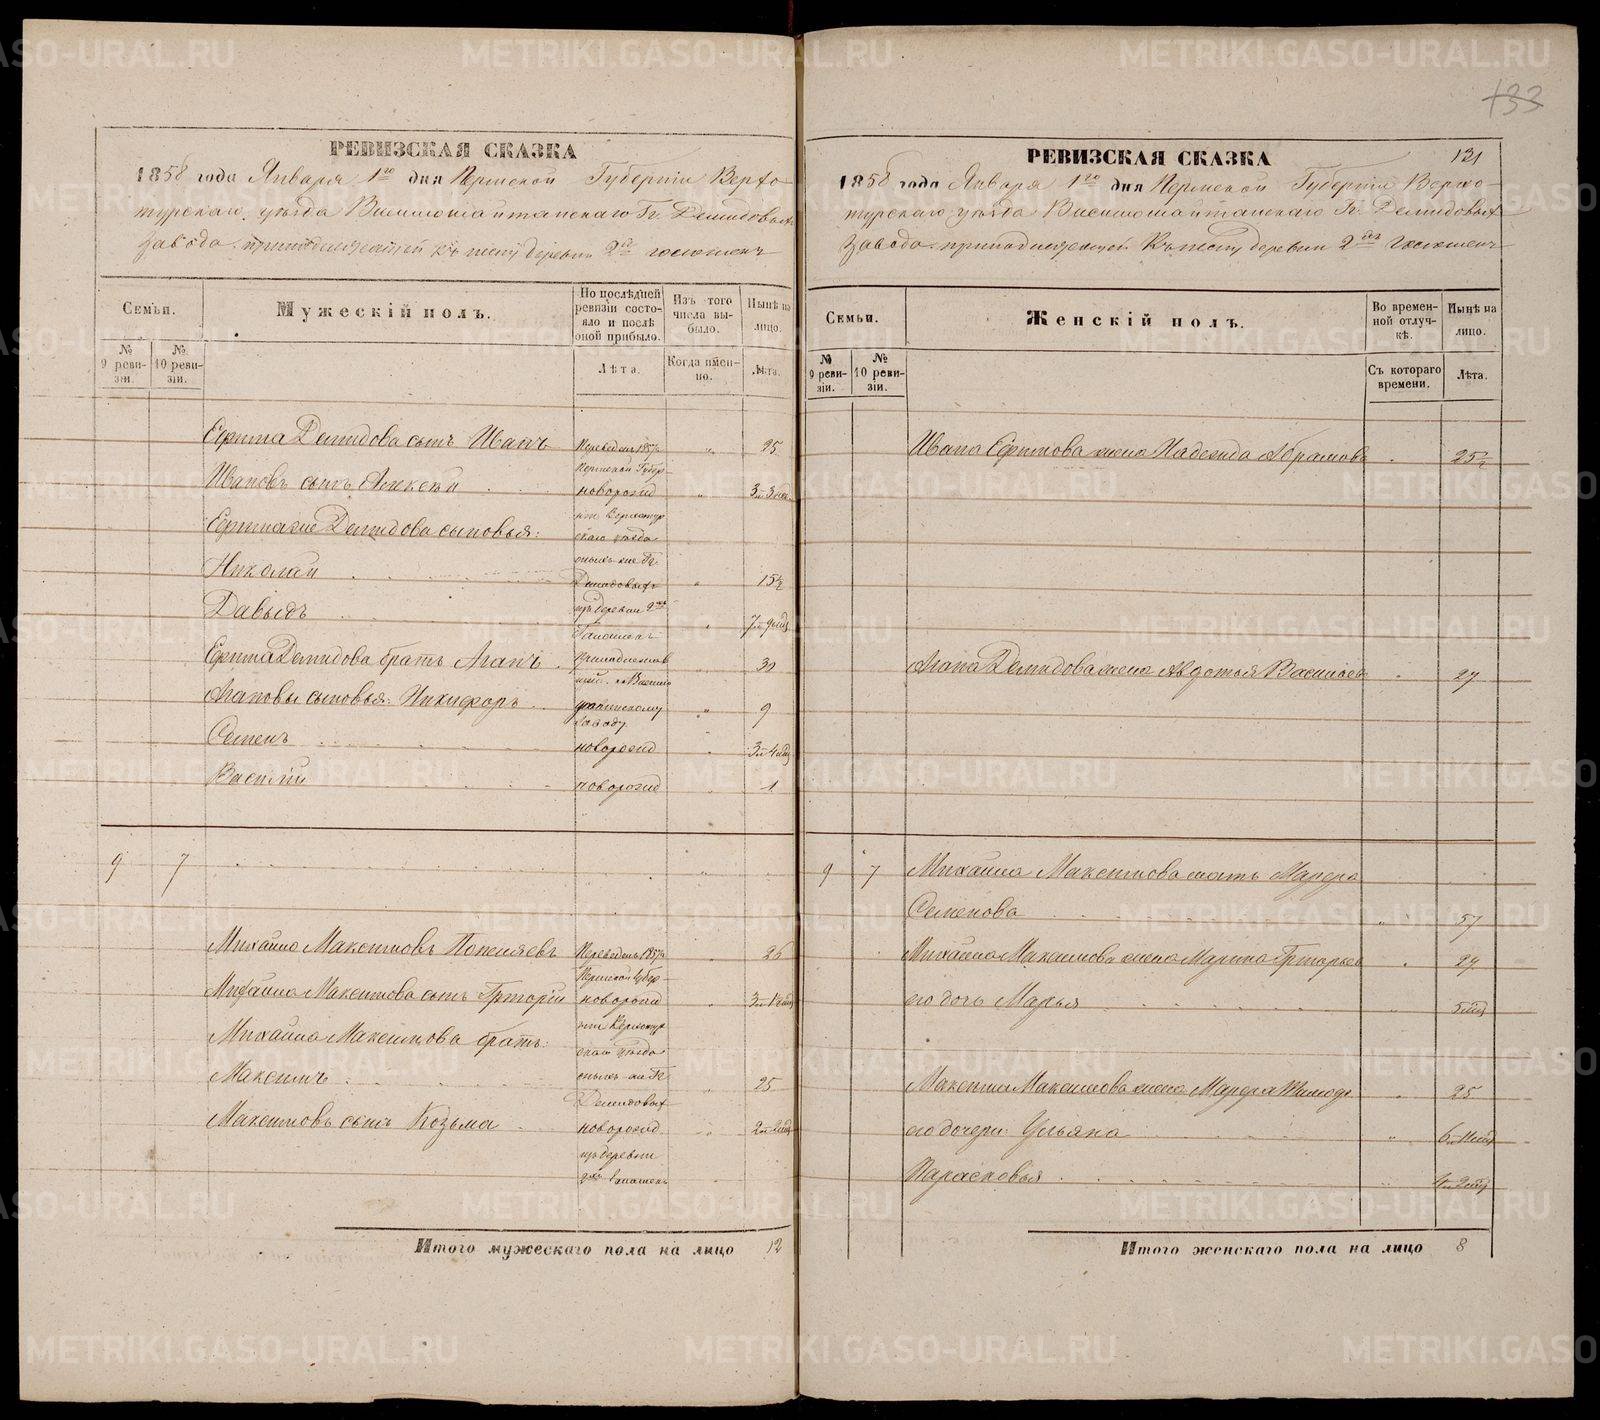 133
РЕВИЗСКАЯ СКАЗКА
1858 года Января 1го дня Пермской Губерніи Верхо-
турскаго уѣзда Висимошайтанскаго Гг. Демидовыхъ
Завода принадлежащей къ нему деревни 2й
Семьи.
Мужескій полъ.
По послѣдней ревизіи состояло и послѣ оной прибыло.
Изъ того числа выбыло.
Нынѣ на лицо.
№ 9 ревизіи.
№ 10 ревизіи.
Лѣта.
Когда именно.
Лѣта.
Ефима Демидова сынъ Иванъ Переведенъ 1857 25
Пермской Губер-
Ивановъ сынъ Алексѣй новорожд 3
Верхотур
Ефима же Демидова сыновья: скаго уѣзда
Николай Демидовыхъ 15½
Давыдъ изъ деревни 2й 7
Ефима Демидова братъ Агапъ 30
Агаповы сыновья: Никифоръ 9
заводу
Семенъ новорожд 3
Василій новорожд 1
9 7
Михайло Максимовъ Переведенъ 1857 26
Пермской Губер
Михайла Максимова сынъ Григорій новорожд 3
Верхотур
Михайла Максимова братъ: скаго уѣзда
Максимъ 25
Демидовыхъ
Максимовъ сынъ Козьма новорожд
изъ деревни
Итого мужескаго пола на лицо 12
РЕВИЗСКАЯ СКАЗКА 131
1858 года Января 1го дня Пермской Губерніи Верхо-
турскаго уѣзда Висимошайтанскаго Гг. Демидовыхъ
Завода принадлежащей къ нему деревни 2й
Семьи.
Женскій полъ.
Во временной отлучкѣ.
Нынѣ на лицо.
№ 9 ревизіи.
№ 10 ревизіи.
Съ котораго времени.
Лѣта.
Ивана Ефимова жена Надежда Абрамова 25½
Агапа Демидова жена Авдотья Васильева 27
9 7 Михайла Максимова мать Марфа
Семенова 57
Михайла Максимова жена Марина Григорьев 27
его дочь Марья
Максима Максимова жена Марфа Тимоф 25
его дочери: Ульяна
Парасковья
Итого женскаго пола на лицо 8
METRIKI.GASO-URAL.RU